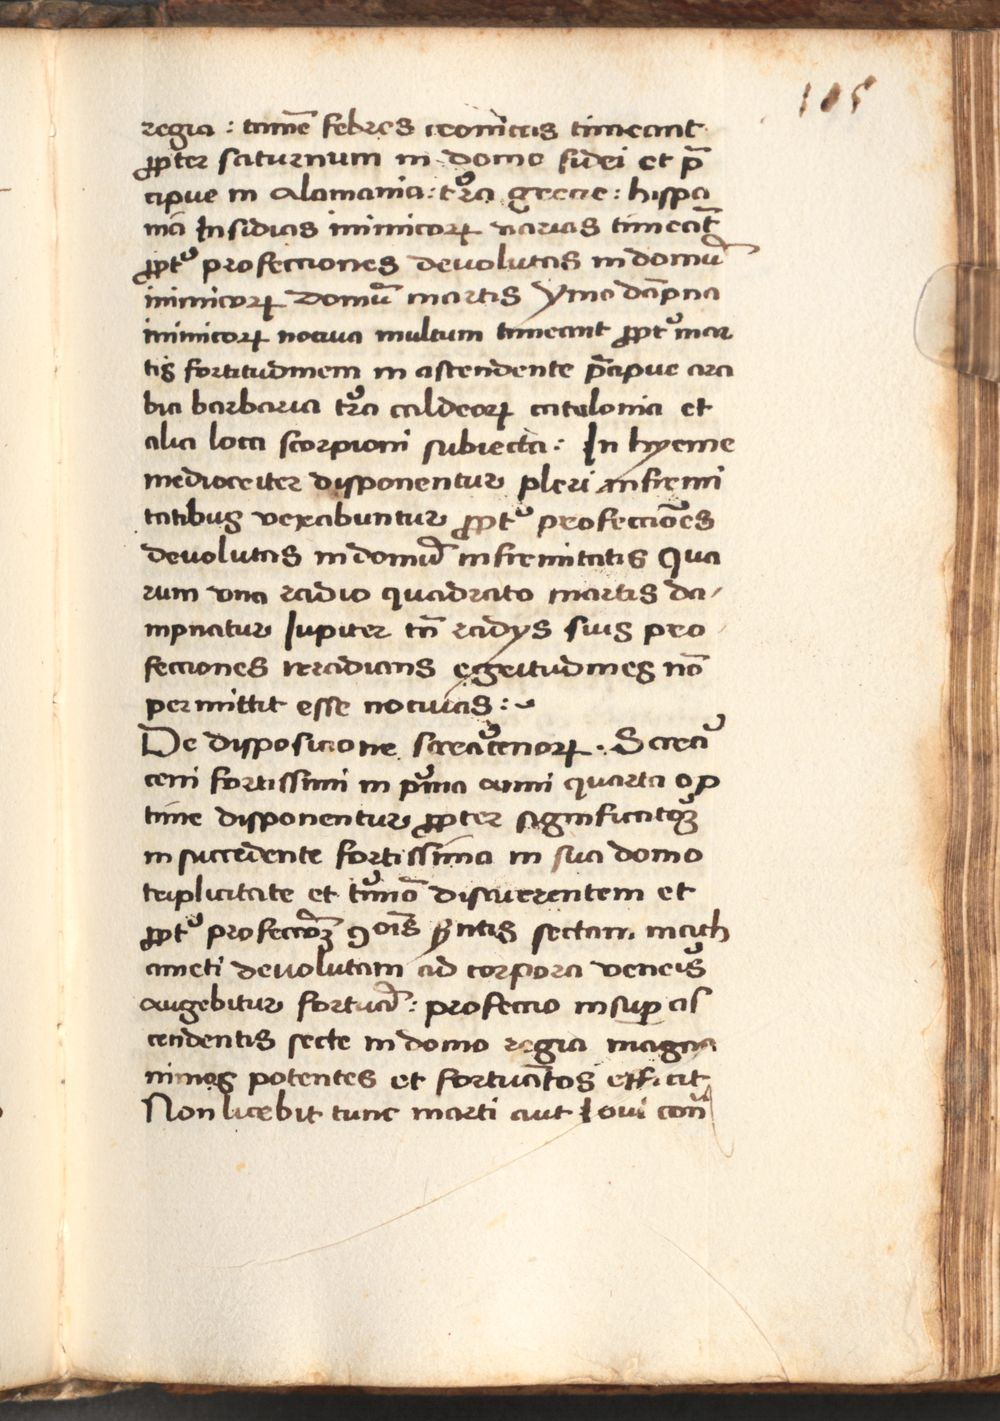 105
regia : tamē febres cronicas timeant
ꝓpter saturnum in domo fidei et p̄
cipue in alamania : tr̄a grecie : hispa
nia Insidias inimicoꝝ varias timeāt
ꝓpt᷑ profecciones deuolutas in domū
inimicoꝝ domū martis ymo dāpna
inimicoꝝ nociua multum timeant ꝓpt᷑ mar
tis fortitudinem in ascendente p̄cipue ara
bia barbaria tr̄a caldeoꝝ catalonia et
alia loca scorpioni subiecta : In hyeme
mediocriter disponentur pleri infirmi
tatibus vexabuntur ꝓpt᷑ profecciōes
deuolutas in domū infirmitatis Qua
rum vna radio quadrato martis da/
mpnatur Iupiter tn̄ radys suis pro
fecciones irradians egritudines nō
permittit esse nociuas :~
De disposicione sarac᷑enoꝝ . Sarac᷑
ceni fortissimi in p᷑ma anni quarta op
time disponentur ꝓpter significatoꝝ
in succedente fortissima in sua domo
triplicitate et t᷑mīo discurrentem et
ꝓpt᷑ profecc̄oꝫ ꝯoīs ÿntis sectam mach
ameti deuolutam ad corpora veneris
augebitur fortuā : profeccio insuꝑ as
cendentis secte in domo regia magna
nimos potentes et fortuātos efficit
Non licebit tunc marti aut Ioui con̄